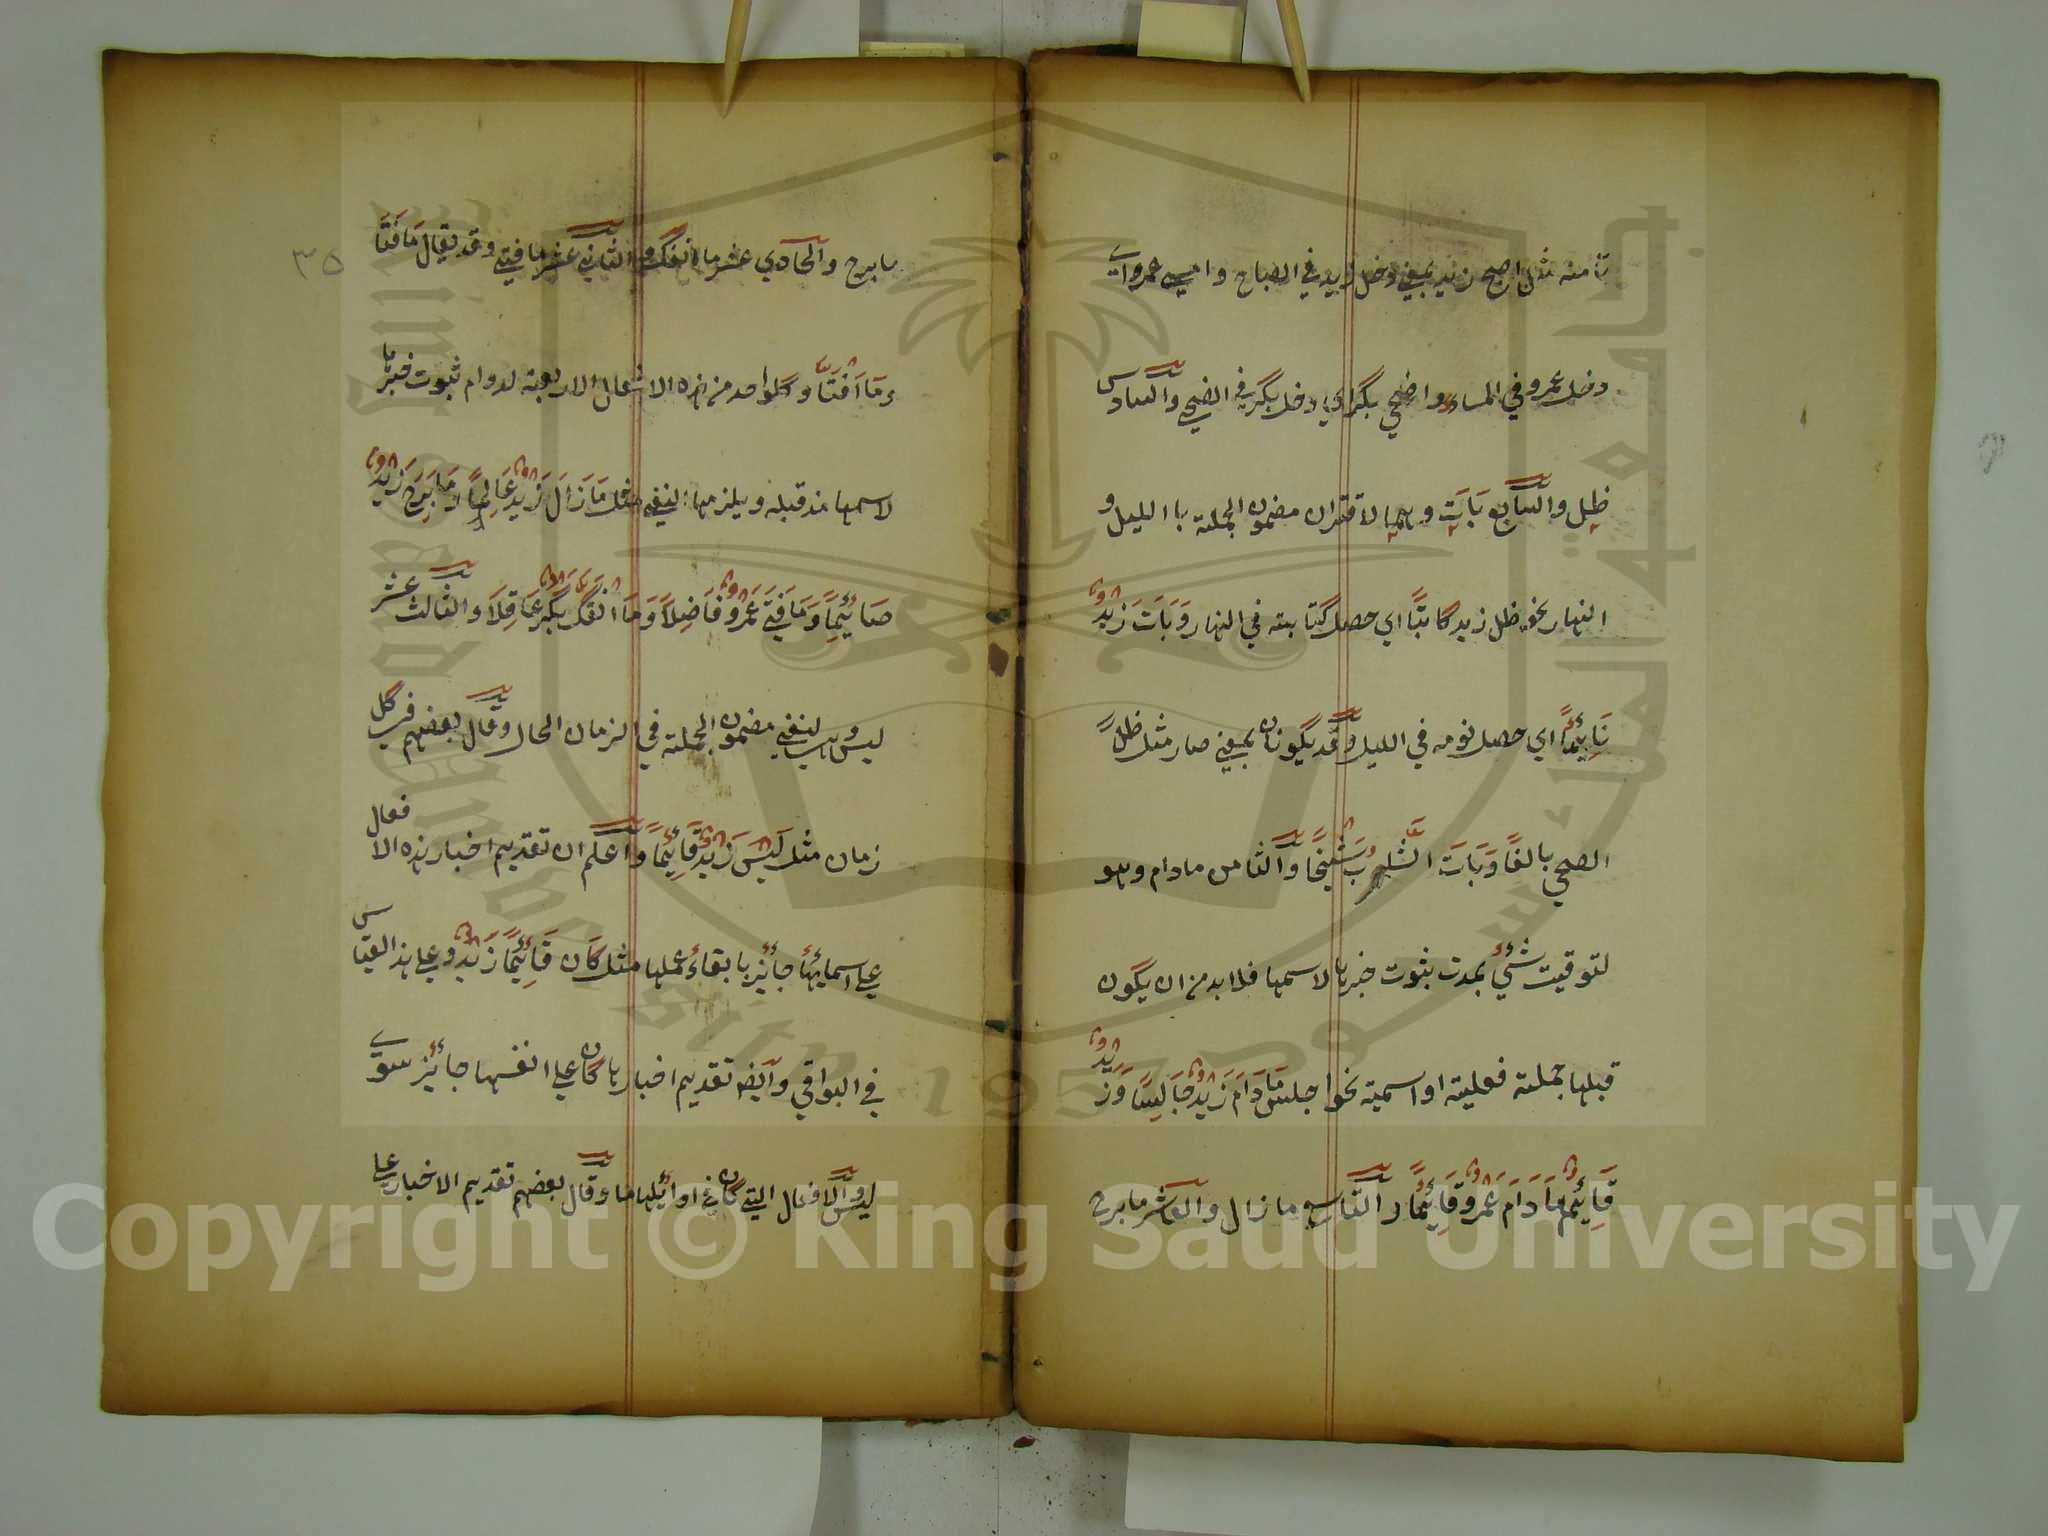 تامة مثل اصبح زيد بمعني دخل زيد في الصباح وامسي عمرو اي
دخل عمرو في المساء واضحي بكر اي دخل بكر في الضحي والسادس
ظل والسابع بَاتَ وهما لاقتران مضمون الجملة باالليل و
النهار نحو ظل زيد كاتبًا اي حصل كتابته في النهار وَبَاتَ زَيْدٌ
نَائِمًا اي حصل نومه في الليل وقد يكونان بمعني صار مثل ظَلَّ
الصبي بالغًا وَبَاتَ الشَّابُّ شَيْخًا والثامن مادام وهو
لتوقيت شئ بمدت ثبوت خبرها لاسمها فلا بد من ان يكون
قبلها جملة فعلية او اسمية نحو اجلس مَادَامَ زَيْدٌ جَالِسًا وَزَيْدٌ
قَائِمٌ مَادَامَ عَمْرٌو قَائِمًا والتاسع مازال والعاشر مابرح
مابرح والحادي عشر ماانفك والثاني عشر مافتئ وقد يقال مَافَتَا
وَمَا اَفْتَا وكلواحد من هذه الافعال الاربعة لدوام ثبوت خبرها
لاسمها مذ قبله ويلزمها النفي مثل مَازَالَ زَيْدٌ عَالِمًا وَمَابَرِحَ زَيْدٌ
صَائِمًا وَمَافَتِئَ عَمْرٌو فَاضِلًا وَمَا انْفَكَّ بَكْرٌ عَاقِلًا والثالث عشر
ليس وهي لنفي مضمون الجملة في الزمان الحال وقال بعضهم في كل
زمان مثل لَيْسَ زَيْدٌ قَائِمًا واعلم ان تقديم اخبار هذه الافعال
علي اسمائها جائز باابقاء عملها مثل كَان قَائِمًا زَيْدٌ وعلي هذا القياس
في البواقي وايضا تقديم اخبارها كان علي انفسها جائز سوي
ليس والافعال التي كان في اوائلها ما وقال بعضهم تقديم الاخبار علي
٣٥
Copyright © King Saud University
جامعة الملك سعود
King Saud University
1957